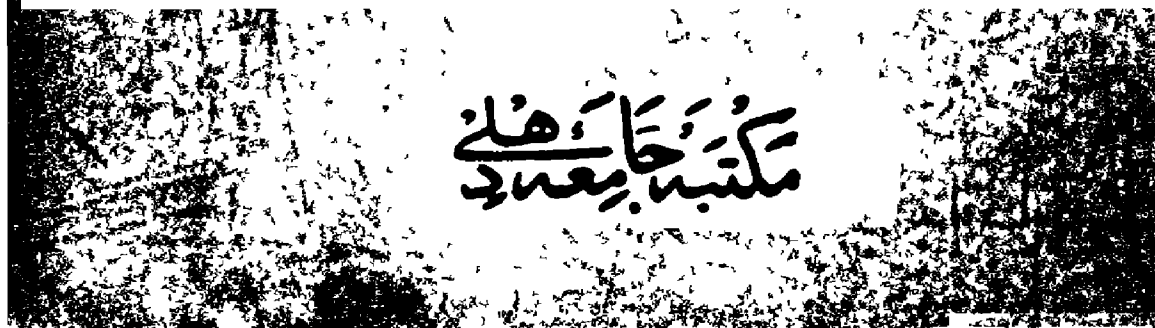 مکتبہ جامعہ دہلی